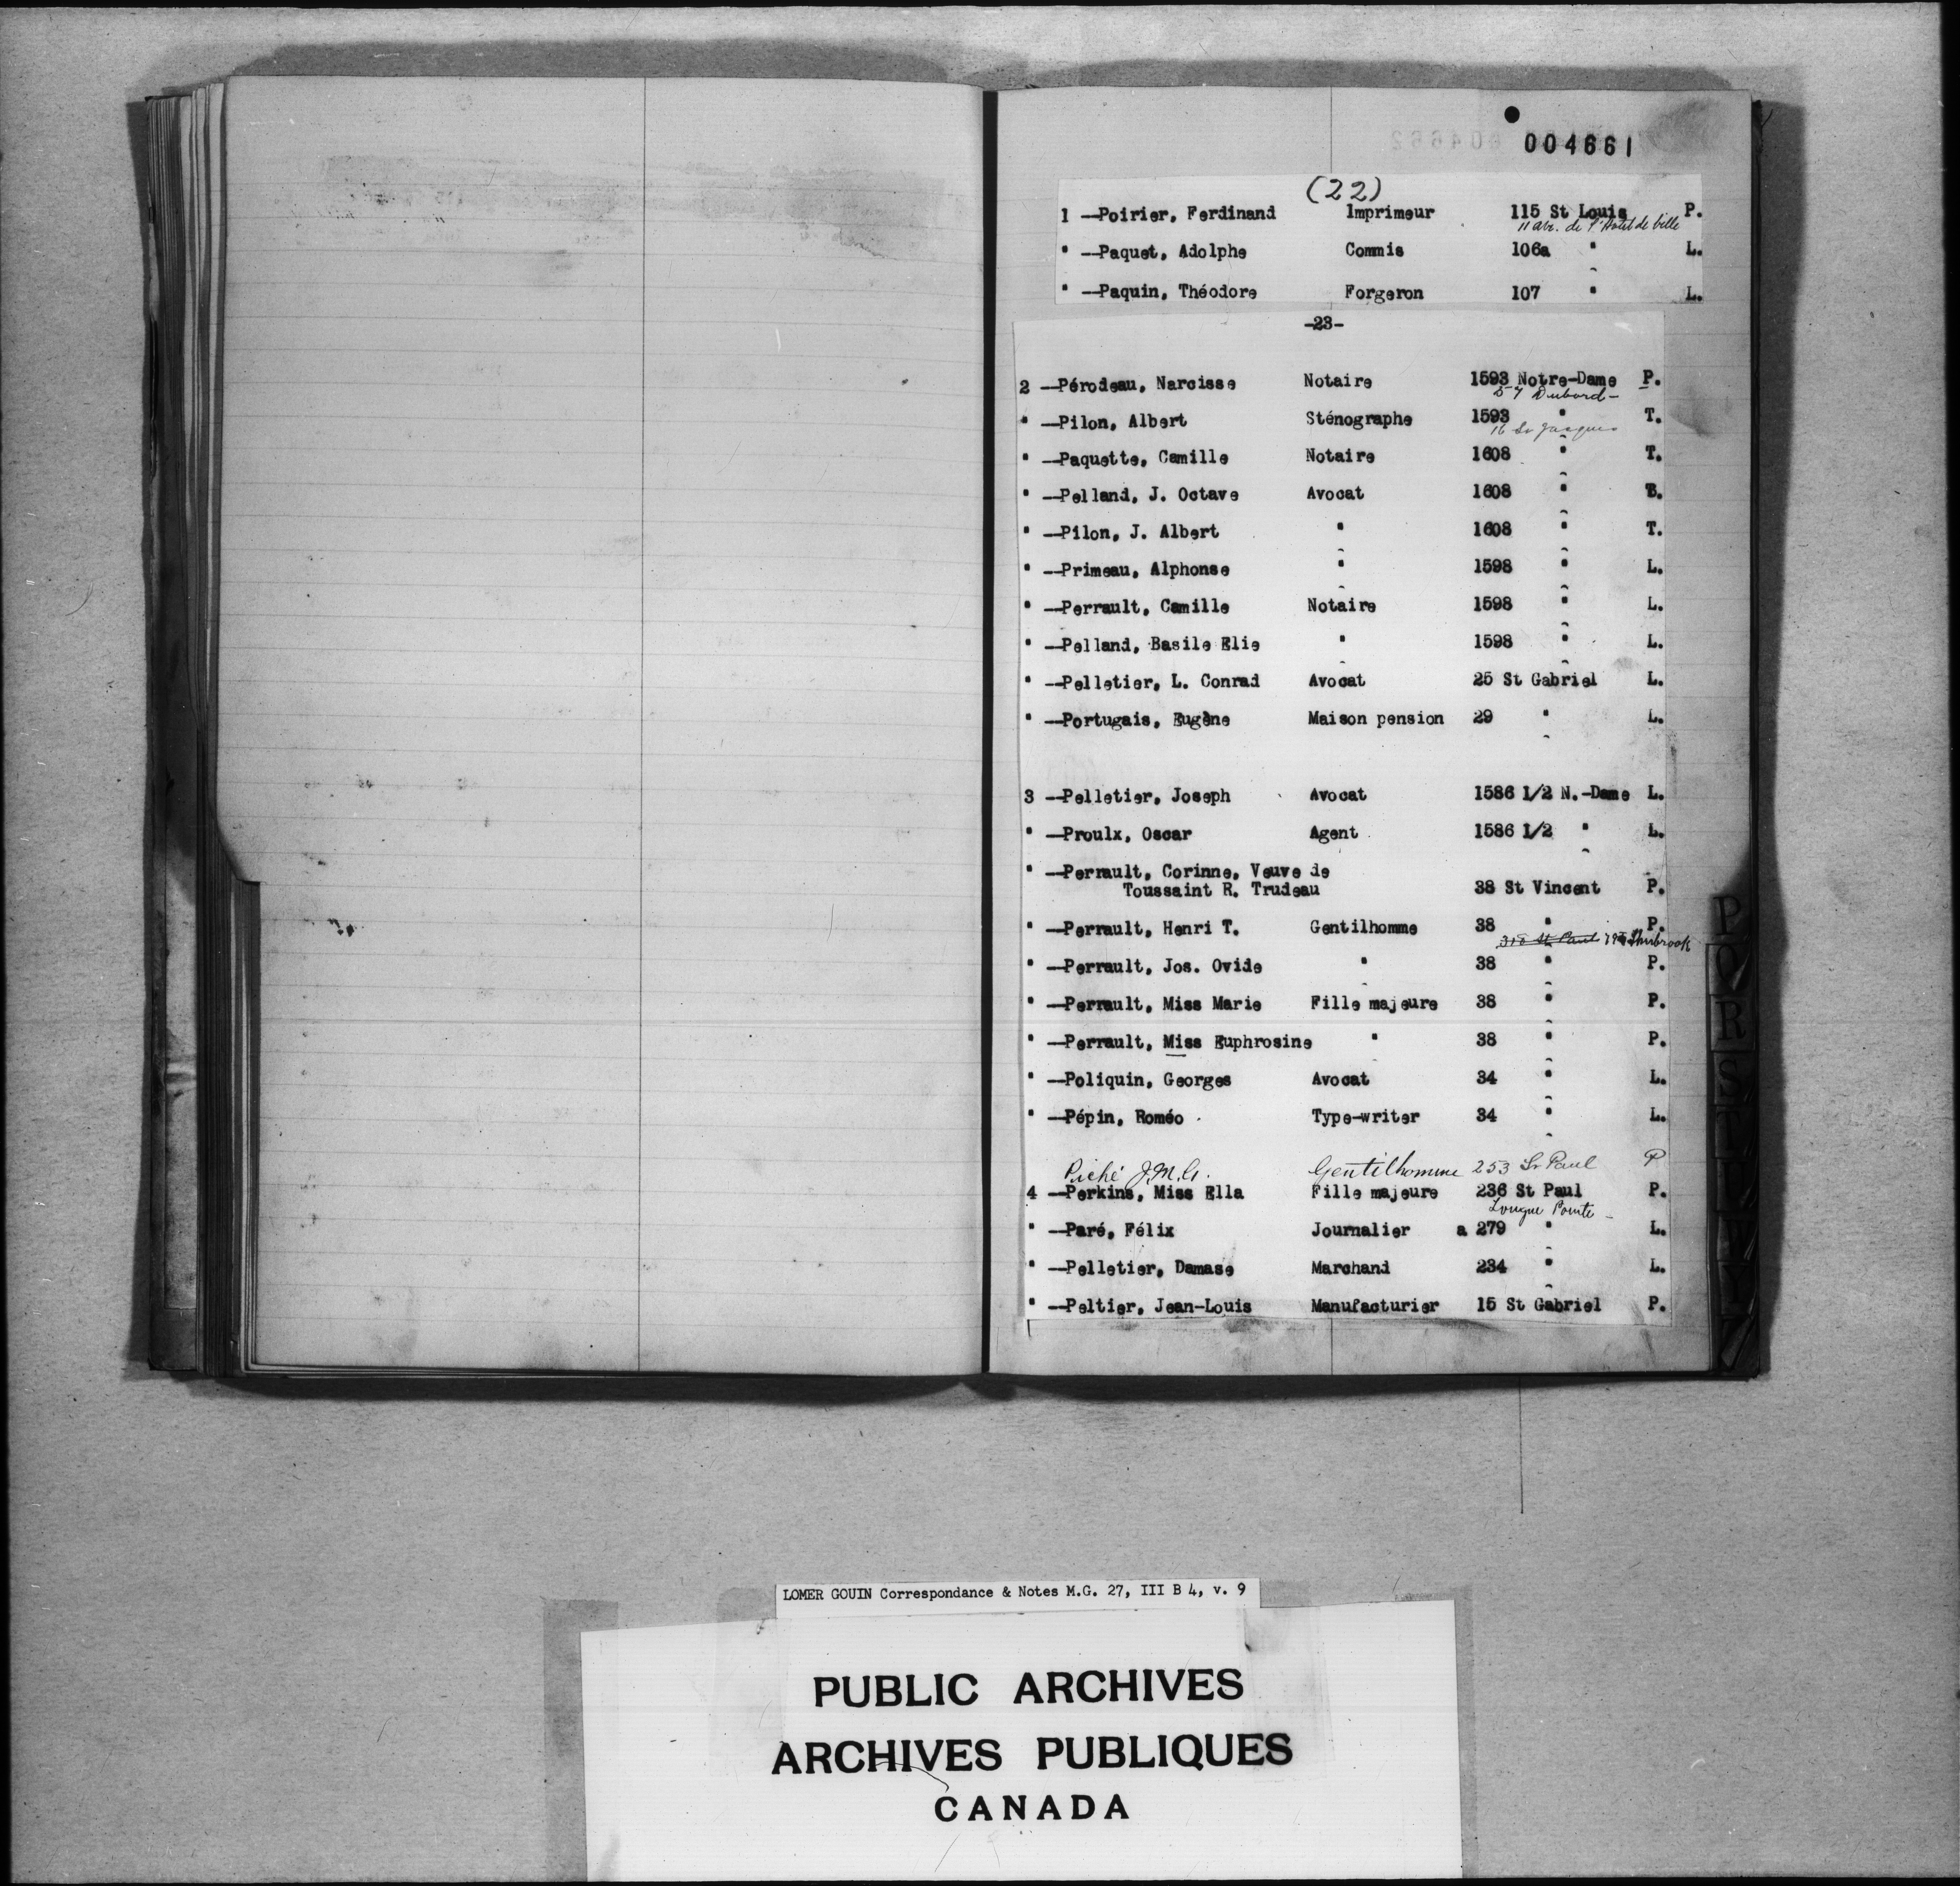 004661
(22)
1 —Poirier, Ferdinand Imprimeur 115 St Louis P.
11 ave. de l'Hotel de ville
" —Paquet, Adolphe Commis 106a " L.
" —Paquin, Théodore Forgeron 107 " L.
-23-
2 —Pérodeau, Narcisse Notaire 1593 Notre-Dame P.
57 Dubord-
" —Pilon, Albert Sténographe 1593 " T.
16 St Jacques
" —Paquette, Camille Notaire 1608 " T.
" —Pelland, J. Octave Avocat 1608 "
" —Pilon, J. Albert " 1608 " T.
" —Primeau, Alphonse " 1598 " L.
" —Perrault, Camille Notaire 1598 " L.
" —Pelland, Basile Elie " 1598 " L.
" —Pelletier, L. Conrad Avocat 25 St Gabriel L.
" —Portugais, Eugène Maison pension 29 " L.
3 —Pelletier, Joseph Avocat 1586 1/2 N.-Dame L.
" —Proulx, Oscar Agent 1586 1/2 " L.
" —Perrault, Corinne, Veuve de
Toussaint R. Trudeau 38 St Vincent P.
" —Perrault, Henri T. Gentilhomme 38 " P.
St Paul Sherbrook
" —Perrault, Jos. Ovide " 38 " P.
" —Perrault, Miss Marie Fille majeure 38 " P.
" —Perrault, Miss Euphrosine " 38 " P.
" —Poliquin, Georges Avocat 34 " L.
" —Pépin, Roméo Type-writer 34 " L.
Piché J.M.G. Gentilhomme 253 St Paul P
4 —Perkins, Miss Ella Fille majeure 236 St Paul P.
Longue Pointe -
" —Paré, Félix Journalier a 279 " L.
" —Pelletier, Damase Marchand 234 " L.
" —Peltier, Jean-Louis Manufacturier 15 St Gabriel P.
P
Q
R
S
T
LOMER GOUIN Correspondance & Notes M.G. 27, III B 4, v. 9
PUBLIC ARCHIVES
ARCHIVES PUBLIQUES
CANADA